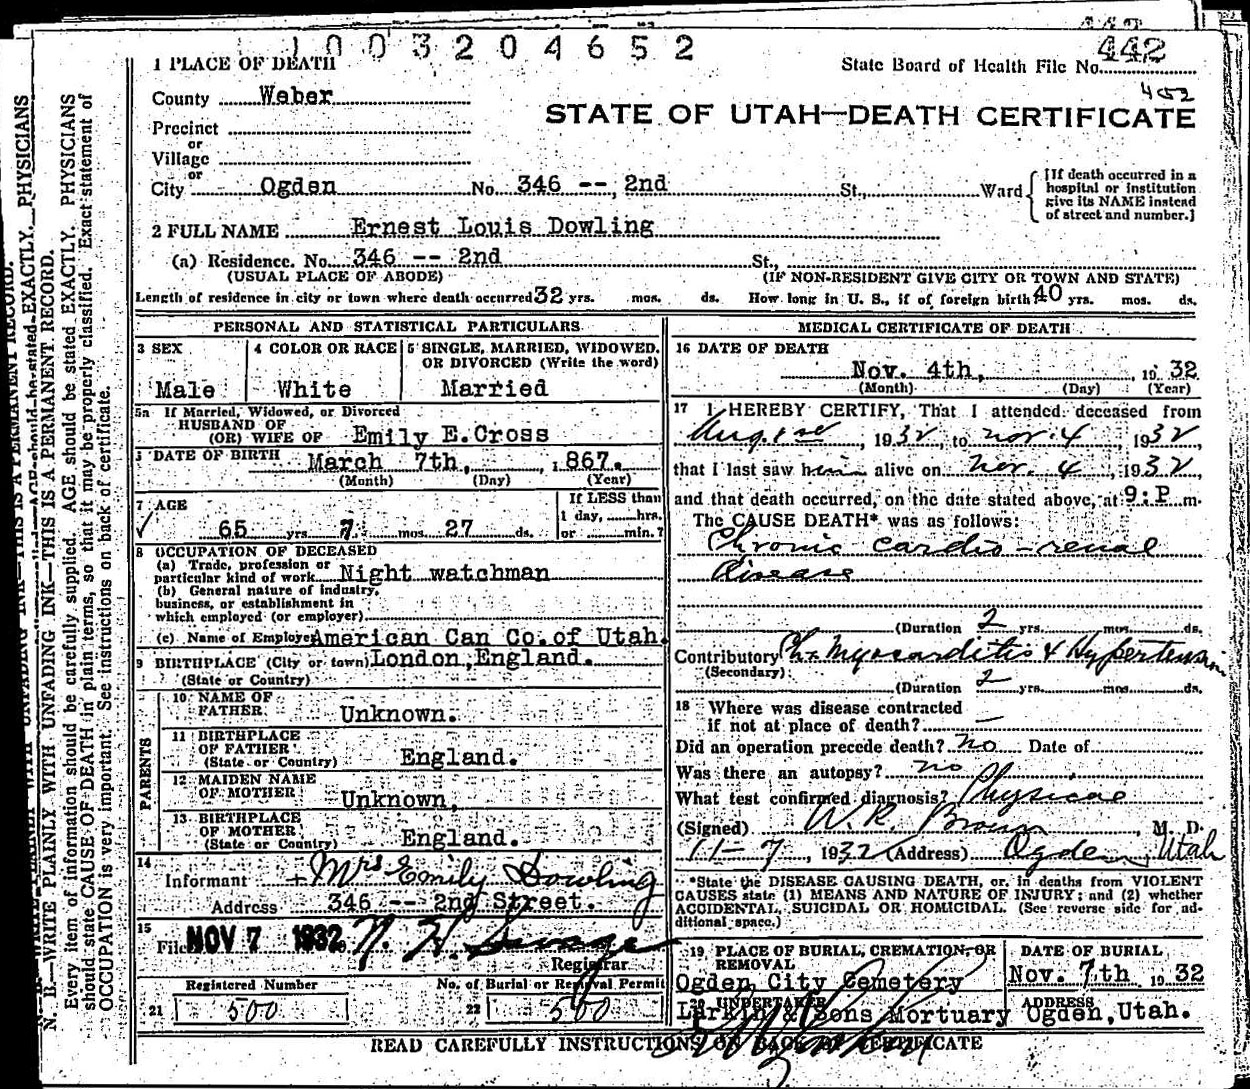 1003204652
442
1 PLACE OF DEATH
State Board of Health File No.
452
County Weber
STATE OF UTAH—DEATH CERTIFICATE
Precinct
or
Village
or
City Ogden No. 346 -- 2nd St., Ward
[If death occurred in a hospital or institution give its NAME instead of street and number.]
2 FULL NAME Ernest Louis Dowling
(a) Residence. No. 346 -- 2nd St.,
(USUAL PLACE OF ABODE) (IF NON-RESIDENT GIVE CITY OR TOWN AND STATE)
Length of residence in city or town where death occurred 32 yrs. mos. ds. How long in U. S., if of foreign birth 40 yrs. mos. ds.
PERSONAL AND STATISTICAL PARTICULARS
3 SEX
Male
4 COLOR OR RACE
White
5 SINGLE, MARRIED, WIDOWED, OR DIVORCED (Write the word)
Married
5a If Married, Widowed, or Divorced
HUSBAND OF
(OR) WIFE OF Emily E.Cross
DATE OF BIRTH March 7th, 1867.
(Month) (Day) (Year)
7 AGE
65 yrs 7 mos. 27 ds.
If LESS than
1 day, hrs.
or min.?
8 OCCUPATION OF DECEASED
(a) Trade, profession or
particular kind of work Night watchman
(b) General nature of industry,
business, or establishment in
which employed (or employer)
(c) Name of Employer American Can Co. of Utah.
9 BIRTHPLACE (City or town) London, England.
(State or Country)
PARENTS
10 NAME OF
FATHER Unknown.
11 BIRTHPLACE
OF FATHER England.
(State or Country)
12 MAIDEN NAME
OF MOTHER Unknown.
13 BIRTHPLACE
OF MOTHER England.
(State or Country)
14
Informant Mrs Emily Dowling
Address 346 -- 2nd Street.
15
Filed NOV 7 1932
Registrar
Registered Number
21 500
No. of Burial or Removal Permit
22 500
MEDICAL CERTIFICATE OF DEATH
16 DATE OF DEATH
Nov. 4th, 1932
(Month) (Day) (Year)
17 I HEREBY CERTIFY, That I attended deceased from
Aug. 1st, 1932, to Nov. 4, 1932
that I last saw him alive on Nov. 4, 1932
and that death occurred, on the date stated above, at 9:P m.
The CAUSE DEATH* was as follows:
Chronic cardio-renal
disease
(Duration 2 yrs. mos. ds.
Contributory Chr Myocarditis & Hypertension
(Secondary)
(Duration 2 yrs. mos. ds.
18 Where was disease contracted
if not at place of death? —
Did an operation precede death? no Date of
Was there an autopsy? no
What test confirmed diagnosis? Physical
(Signed) W.R. Brown, M. D.
11-7, 1932 (Address) Ogden, Utah
*State the DISEASE CAUSING DEATH, or, in deaths from VIOLENT
CAUSES state (1) MEANS AND NATURE OF INJURY; and (2) whether
ACCIDENTAL, SUICIDAL OR HOMICIDAL. (See reverse side for additional space.)
19 PLACE OF BURIAL, CREMATION, OR
REMOVAL
Ogden City Cemetery
DATE OF BURIAL
Nov. 7th 1932
20 UNDERTAKER
Larkin & Sons Mortuary
ADDRESS
Ogden, Utah.
READ CAREFULLY INSTRUCTIONS ON BACK OF CERTIFICATE
N. B.—WRITE PLAINLY WITH UNFADING INK—THIS IS A PERMANENT RECORD.
Every item of information should be carefully supplied. AGE should be stated EXACTLY. PHYSICIANS
should state CAUSE OF DEATH in plain terms, so that it may be properly classified. Exact statement of
OCCUPATION is very important. See instructions on back of certificate.